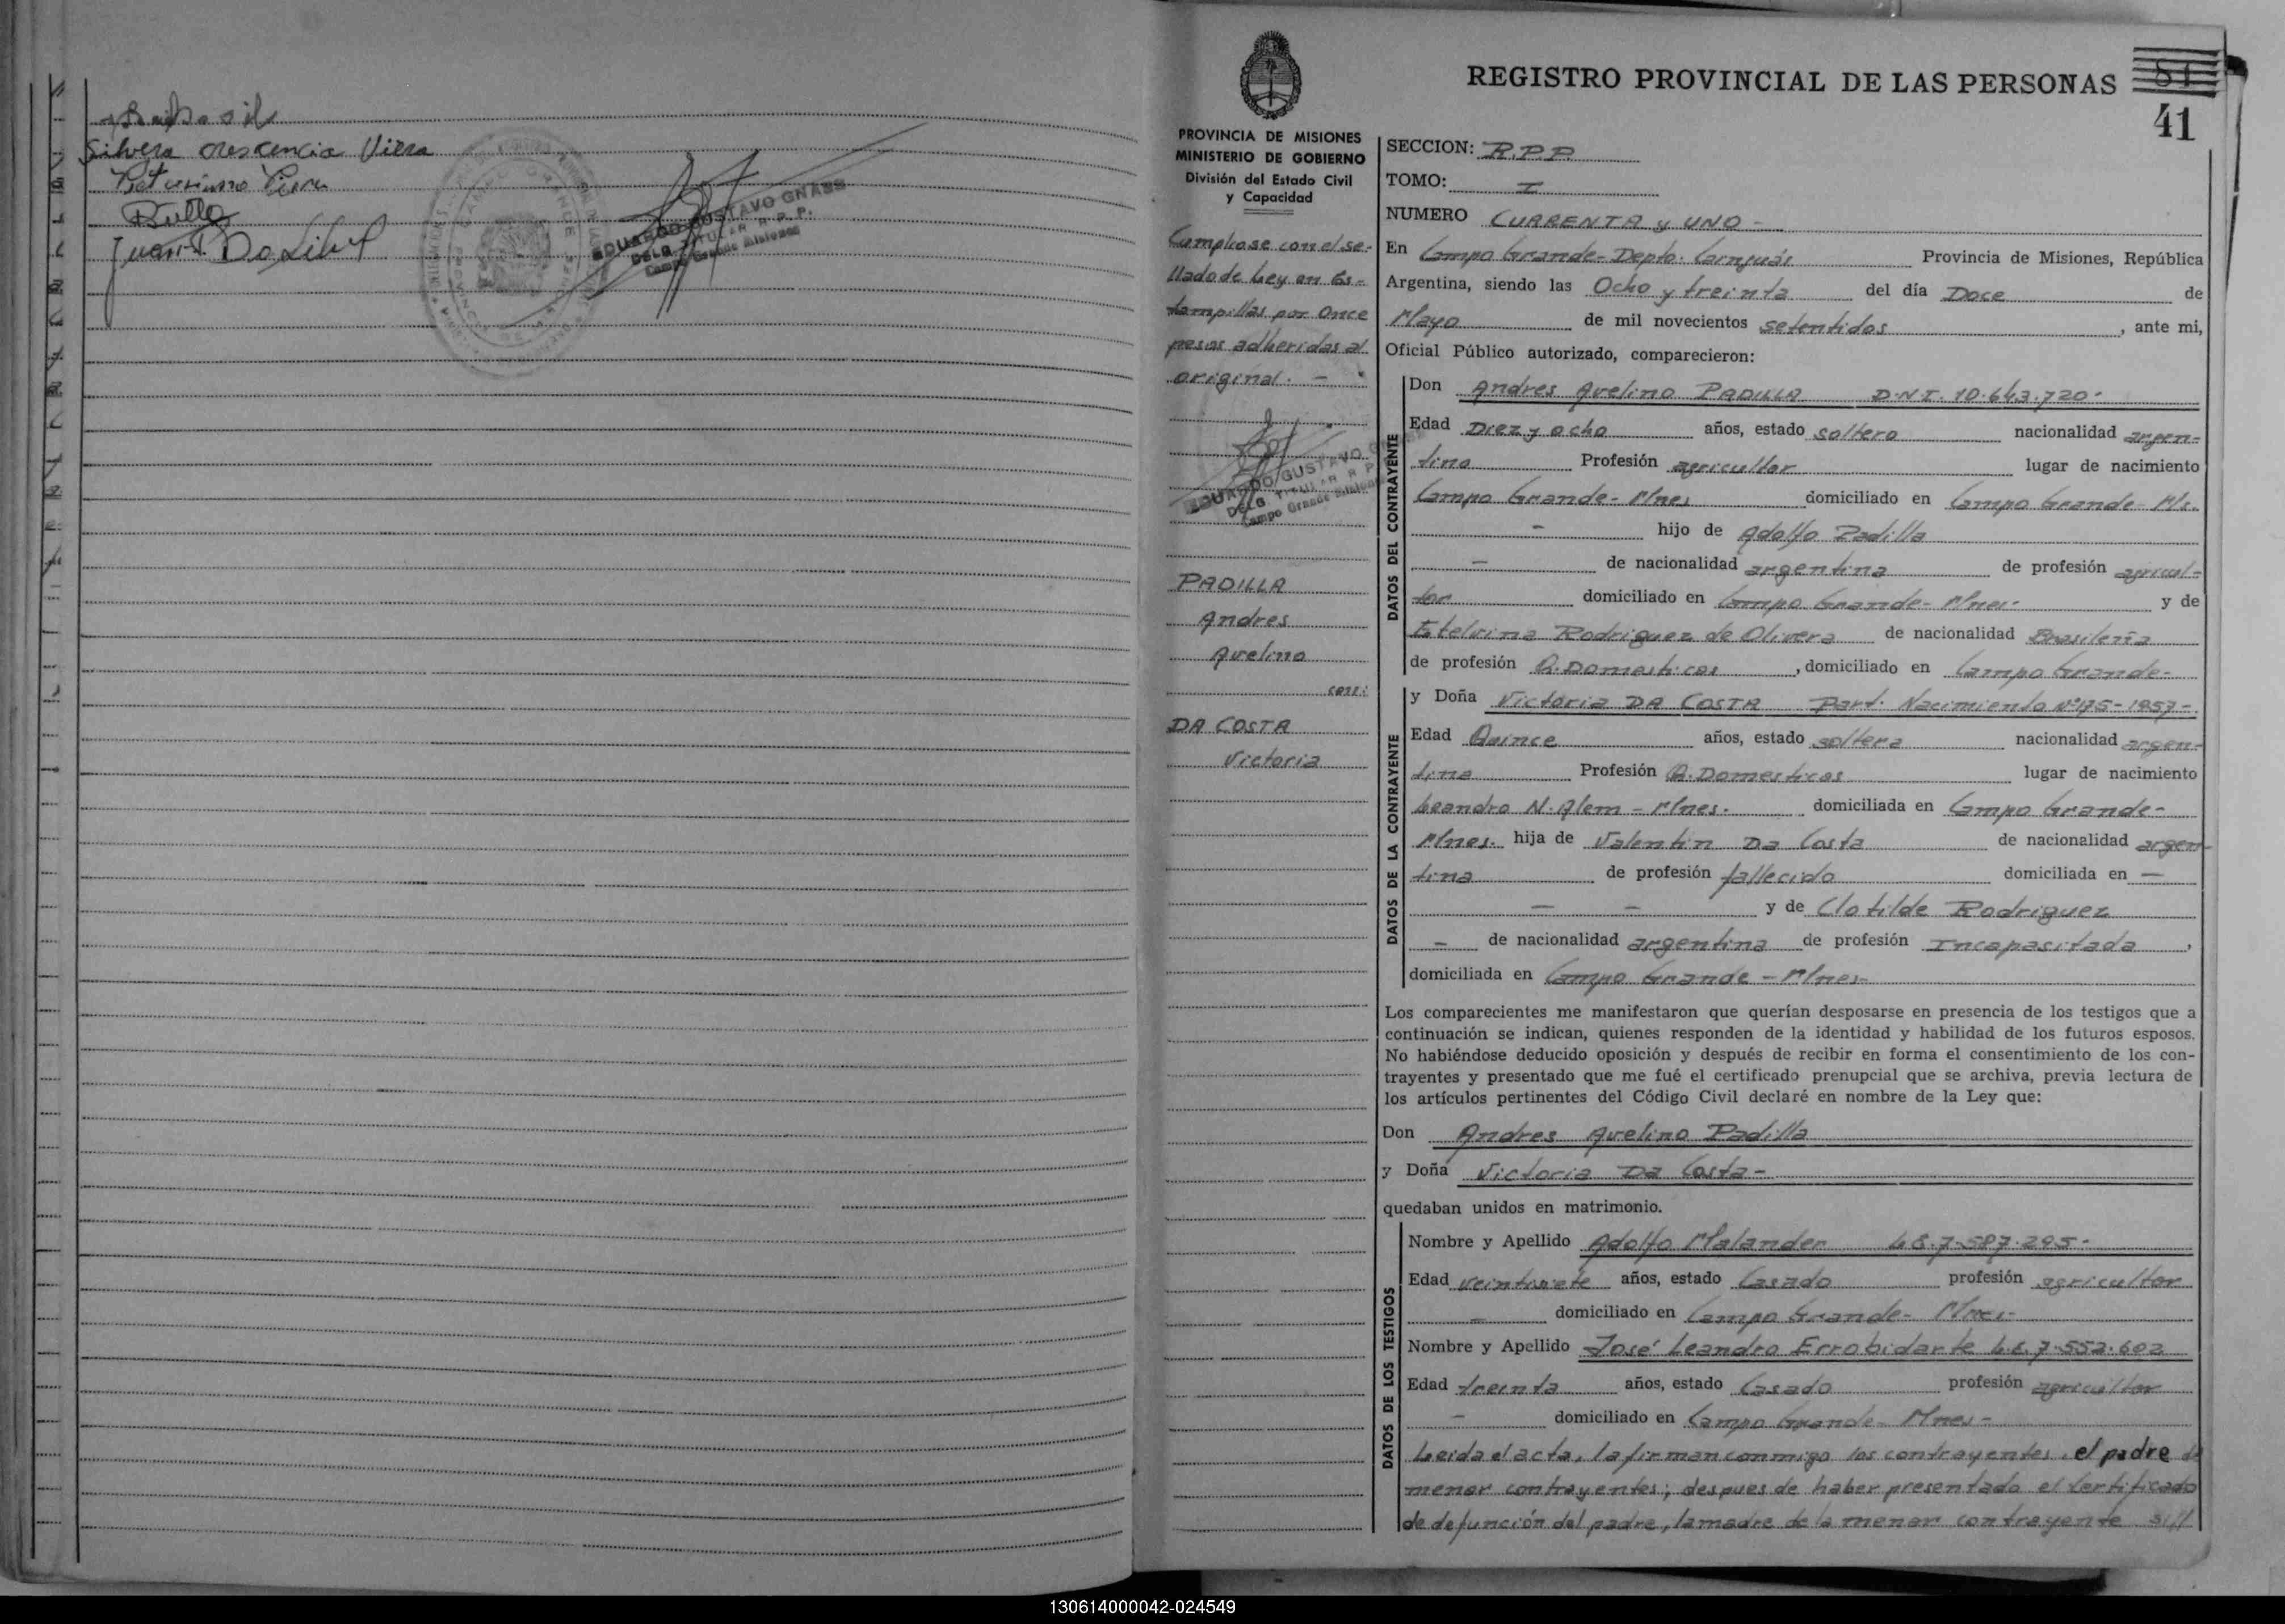 Silvera crescencia Viera
EDUARDO GUSTAVO GNASS
DELG. TITULAR R. P. P.
Campo Grande Misiones
REGISTRO PROVINCIAL DE LAS PERSONAS
41
PROVINCIA DE MISIONES
MINISTERIO DE GOBIERNO
División del Estado Civil
y Capacidad
Cumplease con el se-
llado de Ley en Es-
tampillas por Once
pesos adheridas al
original. -
EDUARDO GUSTAVO
DELG. TITULAR R P
Campo Grande Misiones
PADILLA
Andres
Avelino
con:
DA COSTA
Victoria
SECCION: R.P.P.
TOMO: I
NUMERO CUARENTA y UNO -
En Campo Grande - Depto. Cainguás Provincia de Misiones, República
Argentina, siendo las Ocho y treinta del día Doce de
Mayo de mil novecientos setentidos, ante mi,
Oficial Público autorizado, comparecieron:
DATOS DEL CONTRAYENTE
Don Andres Avelino PADILLA D.N.I. 10.643.720-
Edad Diez y ocho años, estado soltero nacionalidad argen-
tina Profesión agricultor lugar de nacimiento
Campo Grande - Mnes domiciliado en Campo Grande - Ms.
- hijo de Adolfo Padilla
- de nacionalidad argentina de profesión agricul-
tor domiciliado en Campo Grande - Mnes- y de
Etelvina Rodriguez de Olivera de nacionalidad Brasileña
de profesión Q. Domesticos, domiciliado en Campo Grande-
DATOS DE LA CONTRAYENTE
y Doña Victoria DA COSTA Part. Nacimiento Nº 175-1957-
Edad Quince años, estado soltera nacionalidad argen-
tina Profesión Q. Domesticos lugar de nacimiento
Leandro N. Alem - Mnes. domiciliada en Campo Grande-
Mnes. hija de Valentin Da Costa de nacionalidad argen-
tina de profesión fallecido domiciliada en -
- - y de Clotilde Rodriguez
- de nacionalidad argentina de profesión Incapasitada,
domiciliada en Campo Grande - Mnes-
Los comparecientes me manifestaron que querían desposarse en presencia de los testigos que a
continuación se indican, quienes responden de la identidad y habilidad de los futuros esposos.
No habiéndose deducido oposición y después de recibir en forma el consentimiento de los con-
trayentes y presentado que me fué el certificado prenupcial que se archiva, previa lectura de
los artículos pertinentes del Código Civil declaré en nombre de la Ley que:
Don Andres Avelino Padilla
y Doña Victoria Da Costa-
quedaban unidos en matrimonio.
DATOS DE LOS TESTIGOS
Nombre y Apellido Adolfo Malander L.E. 7.587.295-
Edad veintisiete años, estado Casado profesión agricultor
- domiciliado en Campo Grande - Mnes-
Nombre y Apellido José Leandro Errobidarte L.E. 7.552.602
Edad treinta años, estado Casado profesión agricultor
- domiciliado en Campo Grande - Mnes-
Leida el acta, la firman conmigo los contrayentes, el padre del
menor contrayentes; despues de haber presentado el certificado
de defunción del padre, la madre de la menor contrayente
130614000042-024549